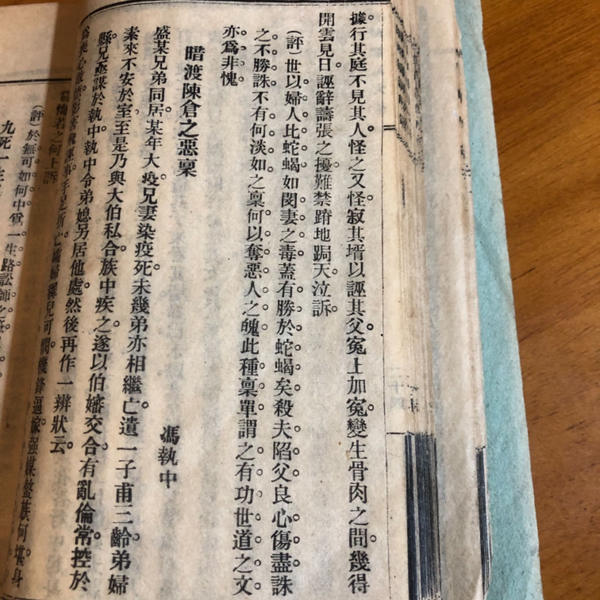 據行其庭不見其人怪之又怪寂其壻以誣其父冤上加冤變生骨肉之間幾得
開雲見日誣辭譸張之擾難禁蹐地跼天泣訴
(評)世以婦人比蛇蝎如閔妻之毒蓋有勝於蛇蝎矣殺夫陷父良心傷盡誅
之不勝誅不有何淡如之稟何以奪惡人之魄此種稟單謂之有功世道之文
亦爲非愧
暗渡陳倉之惡稟
馮執中
盛某兄弟同居某年大疫兄妻染疫死未幾弟亦相繼亡遺一子甫三齡弟婦
素來不安於室至是乃與大伯私合族中疾之遂以伯嬸交合有亂倫常控於
縣兄亟謀於執中執中令弟媳另居他處然後再作一辨狀云
(評)於無可如何中覓一生路訟師之
九死一生